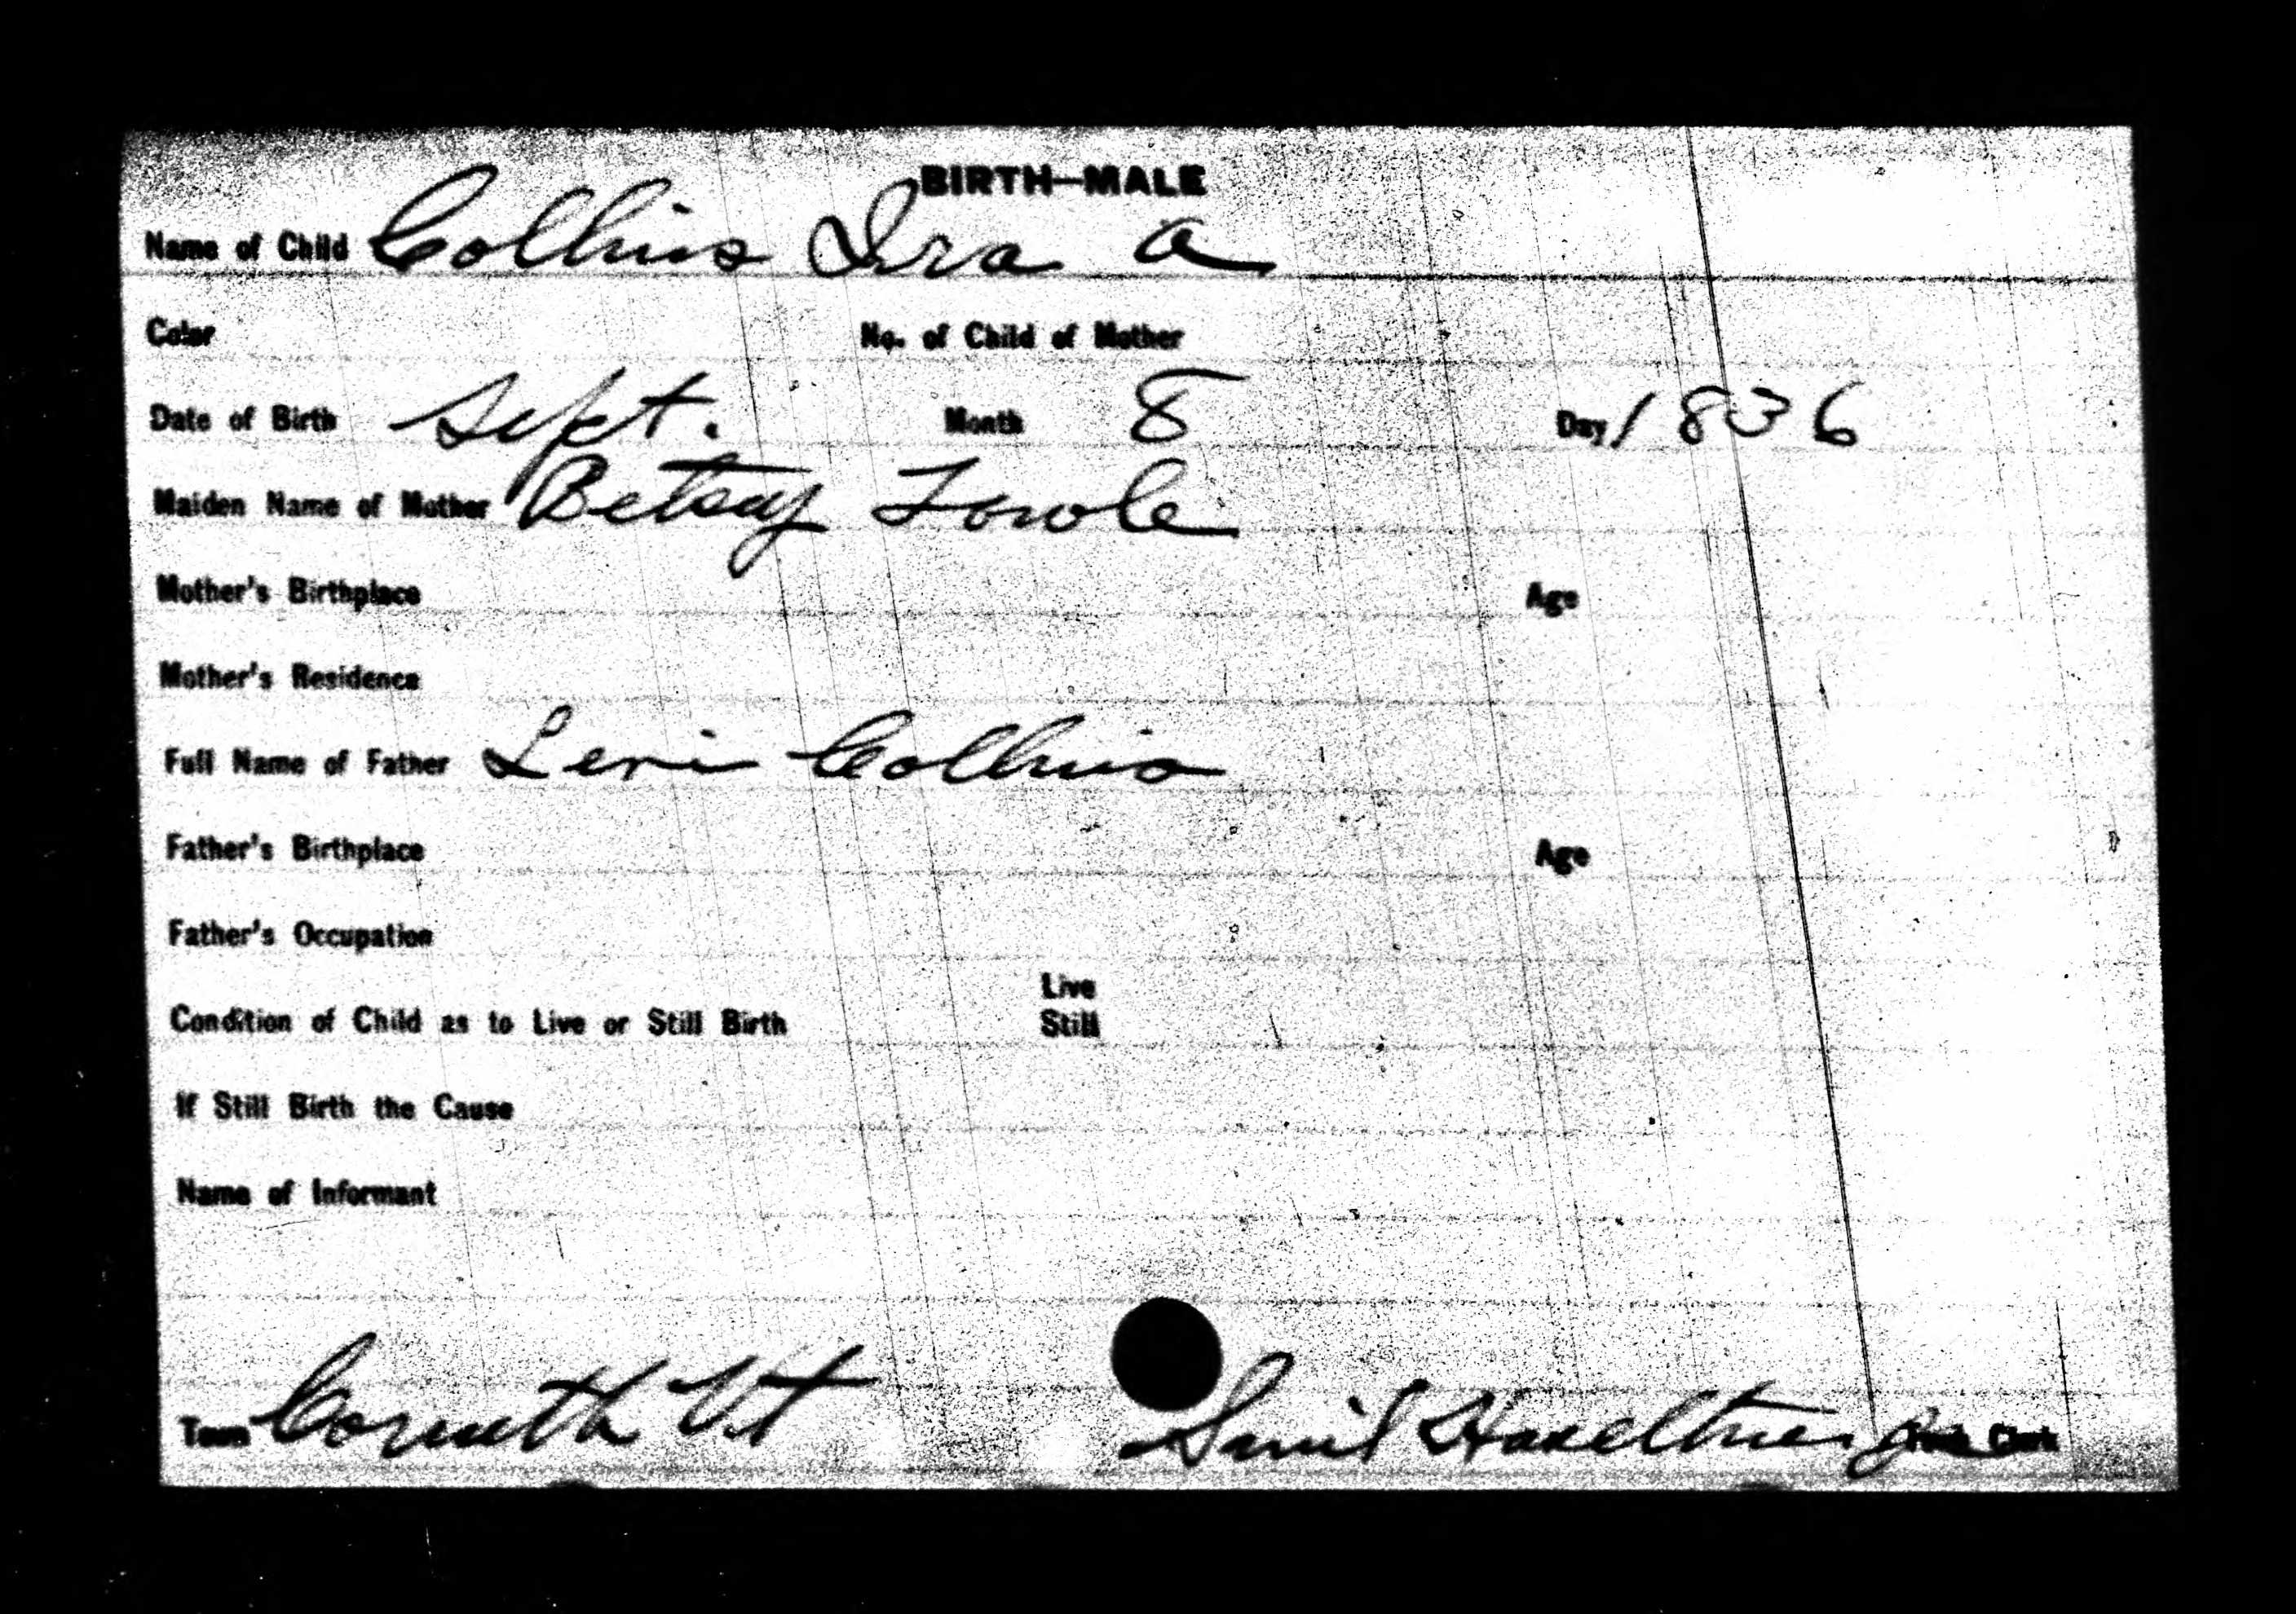 BIRTH—MALE
Name of Child Collins Ira A
Color No. of Child of Mother
Date of Birth Sept. Month 8 Day 1836
Maiden Name of Mother Betsy Towle
Mother's Birthplace Age
Mother's Residence
Full Name of Father Levi Collins
Father's Birthplace Age
Father's Occupation
Live
Condition of Child as to Live or Still Birth Still
If Still Birth the Cause
Name of Informant
Town Corinth Vt Hazeltine Jr Clerk